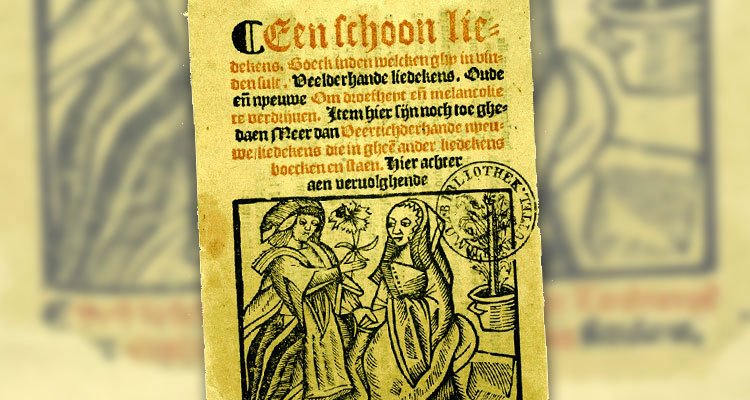 ¶ Een schoon lie⸗
dekens. Boeck inden welcken ghy in vin⸗
den sult. Veelderhande liedekens. Oude
eñ nyeuwe Om droefheyt eñ melancolie
te verdrijuen. Item hier sijn noch toe ghe⸗
daen Meer dan Veertichderhande nyeu⸗
we liedekens die in gheẽ ander liedekens
boecken en staen. Hier achter
aen veruolghende
BIBLIOTHEK